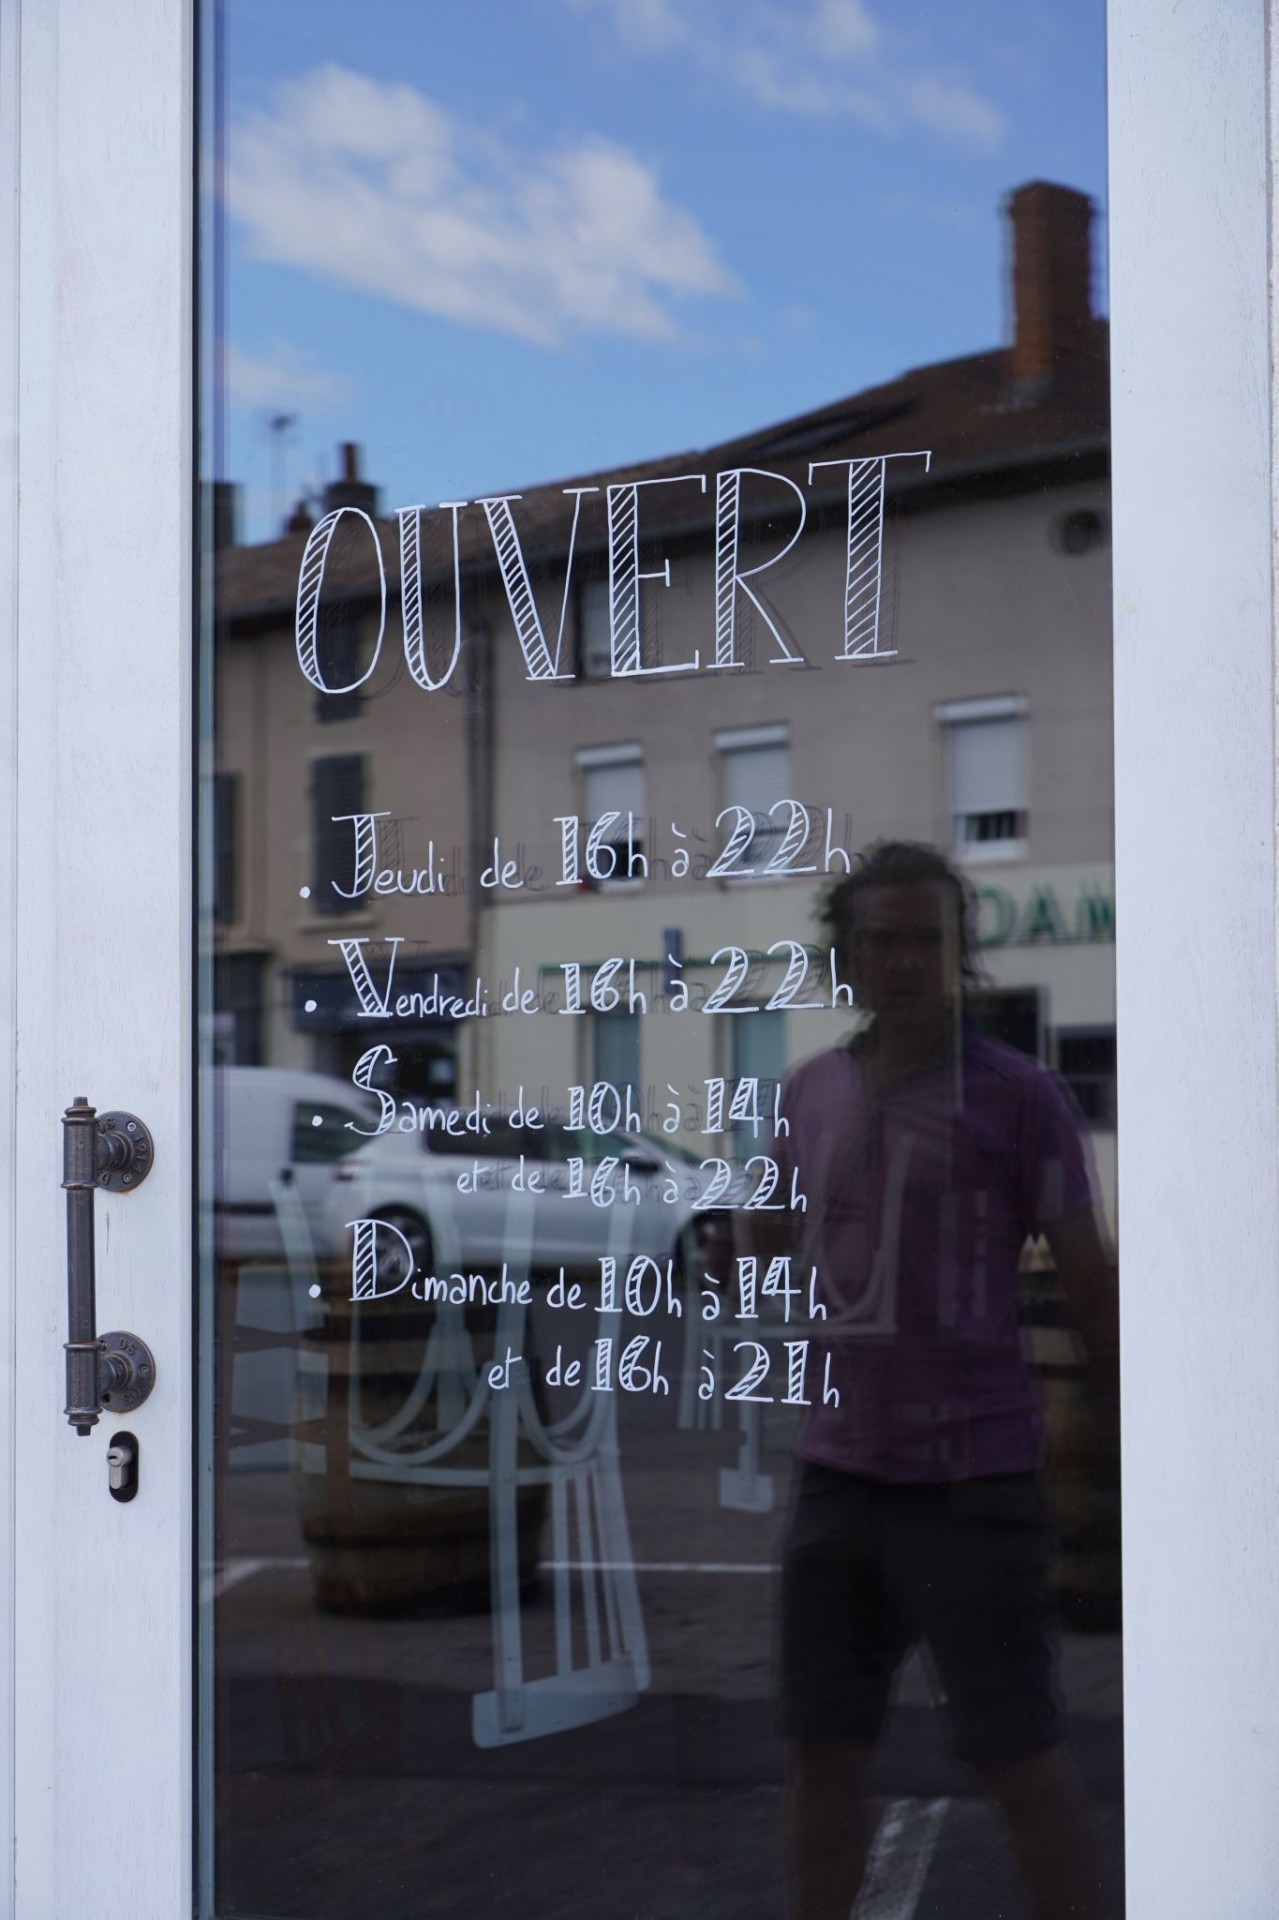 OUVERT
. Jeudi de 16h à 22h
. Vendredi de 16h à 22h
. Samedi de 10h à 14h
et de 16h à 22h
. Dimanche de 10h à 14h
et de 16h à 21h